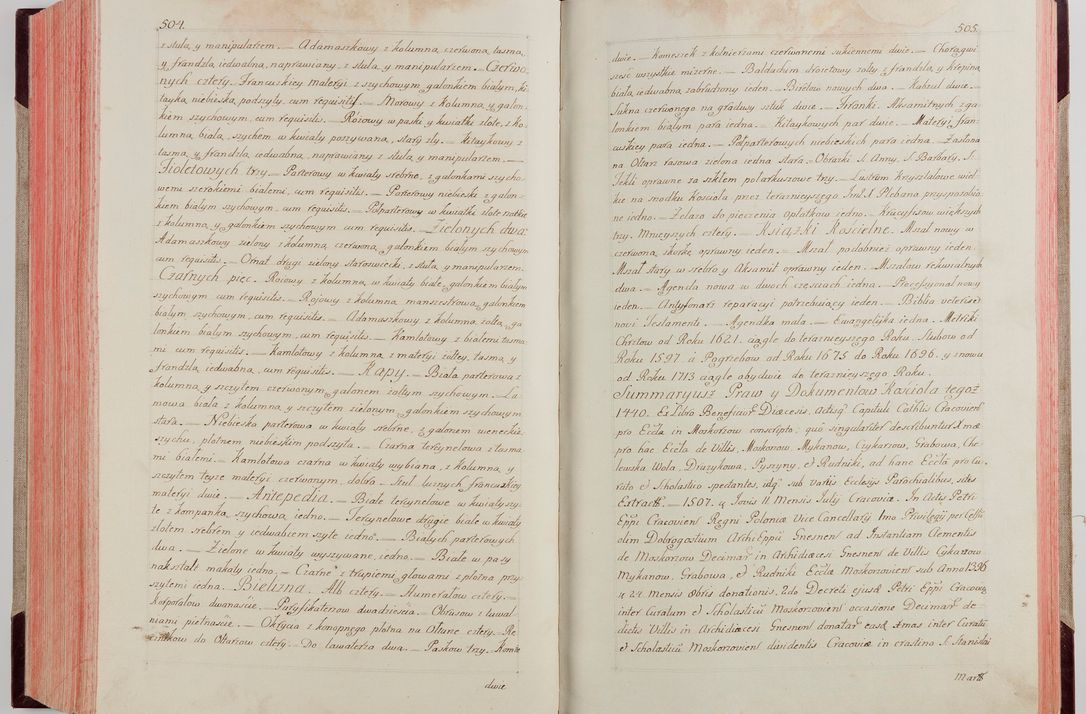 504.
z stułą, y manipularzem. — Adamaszkowy z kolumną czerwoną, tasmą,
y frandzlą, iedwabną, naprawiany, z stułą y manipularzem. — Czerwo-
nych cztery. Francuskiey materyi z szychowym galonkiem białym, ki-
tayką niebieską, podszyty, cum requisitis. — Morowy z kolumną, y galon-
kiem szychowym, cum requisitis. — Rożowy w paski, y kwiatki złote, z ko-
lumną, białą, szychem w kwiaty poszywaną, stary zły. — Kitaykowy z
tasmą, y frandzlą, iedwabną, naprawiany z stułą, y manipularzem. —
Fioletowych trzy. — Parterowy w kwiaty srebrne, z galonkami szycho-
wemi szerokiemi białemi, cum requisitis. — Parterowy niebieski z galon-
kiem białym szychowym, cum requisitis. — Połparterowy w kwiatki złote
z kolumną, y galonkiem szychowym cum requisitis. — Zielonych dwa.
Adamaszkowy zielony z kolumną, czerwoną, galonkiem białym szychowym
cum requisitis. — Ornat drugi zielony staroswiecki, z stułą, y manipularzem.
Czarnych pięc. — Rożowy z kolumną, w kwiaty białe, galonkiem białym
szychowym, cum requisitis. — Rożowy z kolumną, manszestrową, galonkiem
białym szychowym, cum requisitis. — Adamaszkowy z kolumną, żołtą, ga-
lonkiem białym szychowym, cum requisitis. — Kamlotowy z białemi tasma-
mi, cum requisitis. — Kamlotowy z kolumną, z materyi żołtey, tasmą, y
frandzlą, iedwabną, cum requisitis. — Kapy. — Biała parterowa z
kolumną, y szczytem czerwonym, galonem żołtym szychowym. — La-
mowa biała z kolumną, y szczytem zielonym, galonkiem szychowym
stara. — Niebiesko parterowa w kwiaty srebrne, z galonem weneckie-
szychu, płotnem niebieskim podszyta. — Czarna tercynelowa z tasma-
mi białemi. — Kamlotowa czarna w kwiaty wybiana, z kolumną, y
szczytem teyże materyi czerwonym, dobra. — Stuł luznych francuskiey
materyi dwie. — Antepedia. — Białe tercynelowe w kwiaty szy-
te z kompanką, szychową, iedno. — Tercynelowe drugie białe w kwiaty
złotem srebrem y iedwabiem szyte iedno. — Białych parterowych
dwa. — Zielone w kwiaty wyszywane, iedno. — Białe w pasy
nakształt makaty iedno. — Czarne z trupiemi głowami z płotna przy-
szytemi iedna. Bielizna. Alb cztery. — Humerałow cztery. —
Korporałow dwanascie. — Puryfikaterzow dwadziescia. — Obrusow z tuwal-
niami pietnascie. — Okrycia z konopnego płotna na Ołtarze cztery. Rę-
cznikow do Ołtarzow cztery. — Do lawaterza dwa. — Paskow trzy. — Komże
dwie
505.
dwie. — Komeszek z kołnierzami czerwonemi sukiennemi dwie. — Chorągwi
szesc wszystkie mizerne. — Baldachim drocietowy żołty z frandzlą, y krepiną
białą, iedwabną, zabrudzony ieden. — Biretow nowych dwa. — Kabzul dwie. —
Sukna czerwonego na gradusy sztuk dwie. — Firanki. Aksamitnych z ga-
lonkiem białym para iedna. — Kitaykowych par dwie. — Materyi fran-
cuskiey para iedna. — Połparterowych niebieskich para iedna. — Zasłona
na Ołtarz rasowa zielona iedna stara. — Obrazki S. Anny, S. Barbary, S.
Tekli oprawne za szkłem połarkuszowe trzy. — Lustrum krzyształowe wiel-
kie na srodku Koscioła przez teraznieyszego Jmć X. Plebana przysposobio-
ne iedno. — Zelazo do pieczenia opłatkow iedno. — Krucyfixow większych
trzy. Mnieyszych cztery. — Ksiązki Koscielne. — Mszał nowy w
czerwoną, skorkę oprawny ieden. — Mszał podobnież oprawny ieden.
Mszał stary w srebro y Aksamit oprawny ieden. — Mszałow rekwialnych
dwa. — Agenda nowa w dwoch częsciach iedna. — Processyonał nowy
ieden. — Antyfonarz reparacyi potrzebuiący ieden. — Biblia veteris et
novi Testamenti. — Agendka mała. — Ewangeliyka iedna. — Metryki
Chrztow od Roku 1621. ciągle do teraznieyszego Roku. Slubow od
Roku 1597. a Pogrzebow od Roku 1675 do Roku 1696. y znowu
od Roku 1713 ciągle obydwie do teraznieyszego Roku.
Summaryusz Praw y Dokumentow Koscioła tegoż
1440. Ex Libro Beneficior Diæcesis, Actisq Capituli Cathlis Cracovien
pro Eccla in Moskorzow conscripto: quo singulariter describuntur Xmæ
pro hac Eccla de Villis, Moskorzow, Mykanow, Cykarzow, Grabowa, Che-
lewska Wola, Dzierzkowa, Pyszyny, et Rudniki, ad hanc Eccla pro Cu-
rato et Scholastico spedantes, idq sub variis Ecclesijs Parochialibus, sitis
Extractt. — 1507. 4 Jovis 11 Mensis July Cracoviæ. In Actis Petri
Eppi Cracovien Regni Poloniæ Vice Cancellarij Imo Privilegij per Celssi
olim Dobrogostium Archi Eppu Gnesnen ad Instantiam Clementis
de Moskorzow Decimar in Archidiæcesi Gnesnen de Villis Cykarzow,
Mykanow, Grabowa, et Rudniki Eccla Moskorzovient sub Anno 1396
4 24 Mensis Obris donationis. 2do Decreti ejusd Petri Eppi Cracovien
inter Curatum et Scholasticu Moskorzovien occasione Decimar de-
dictis Villis in Archidiæcesi Gnesnen donatar easq Xmas inter Curatu
et Scholasticu Moskorzovien dividentis Cracoviæ in crastino S. Stanislai
Martt